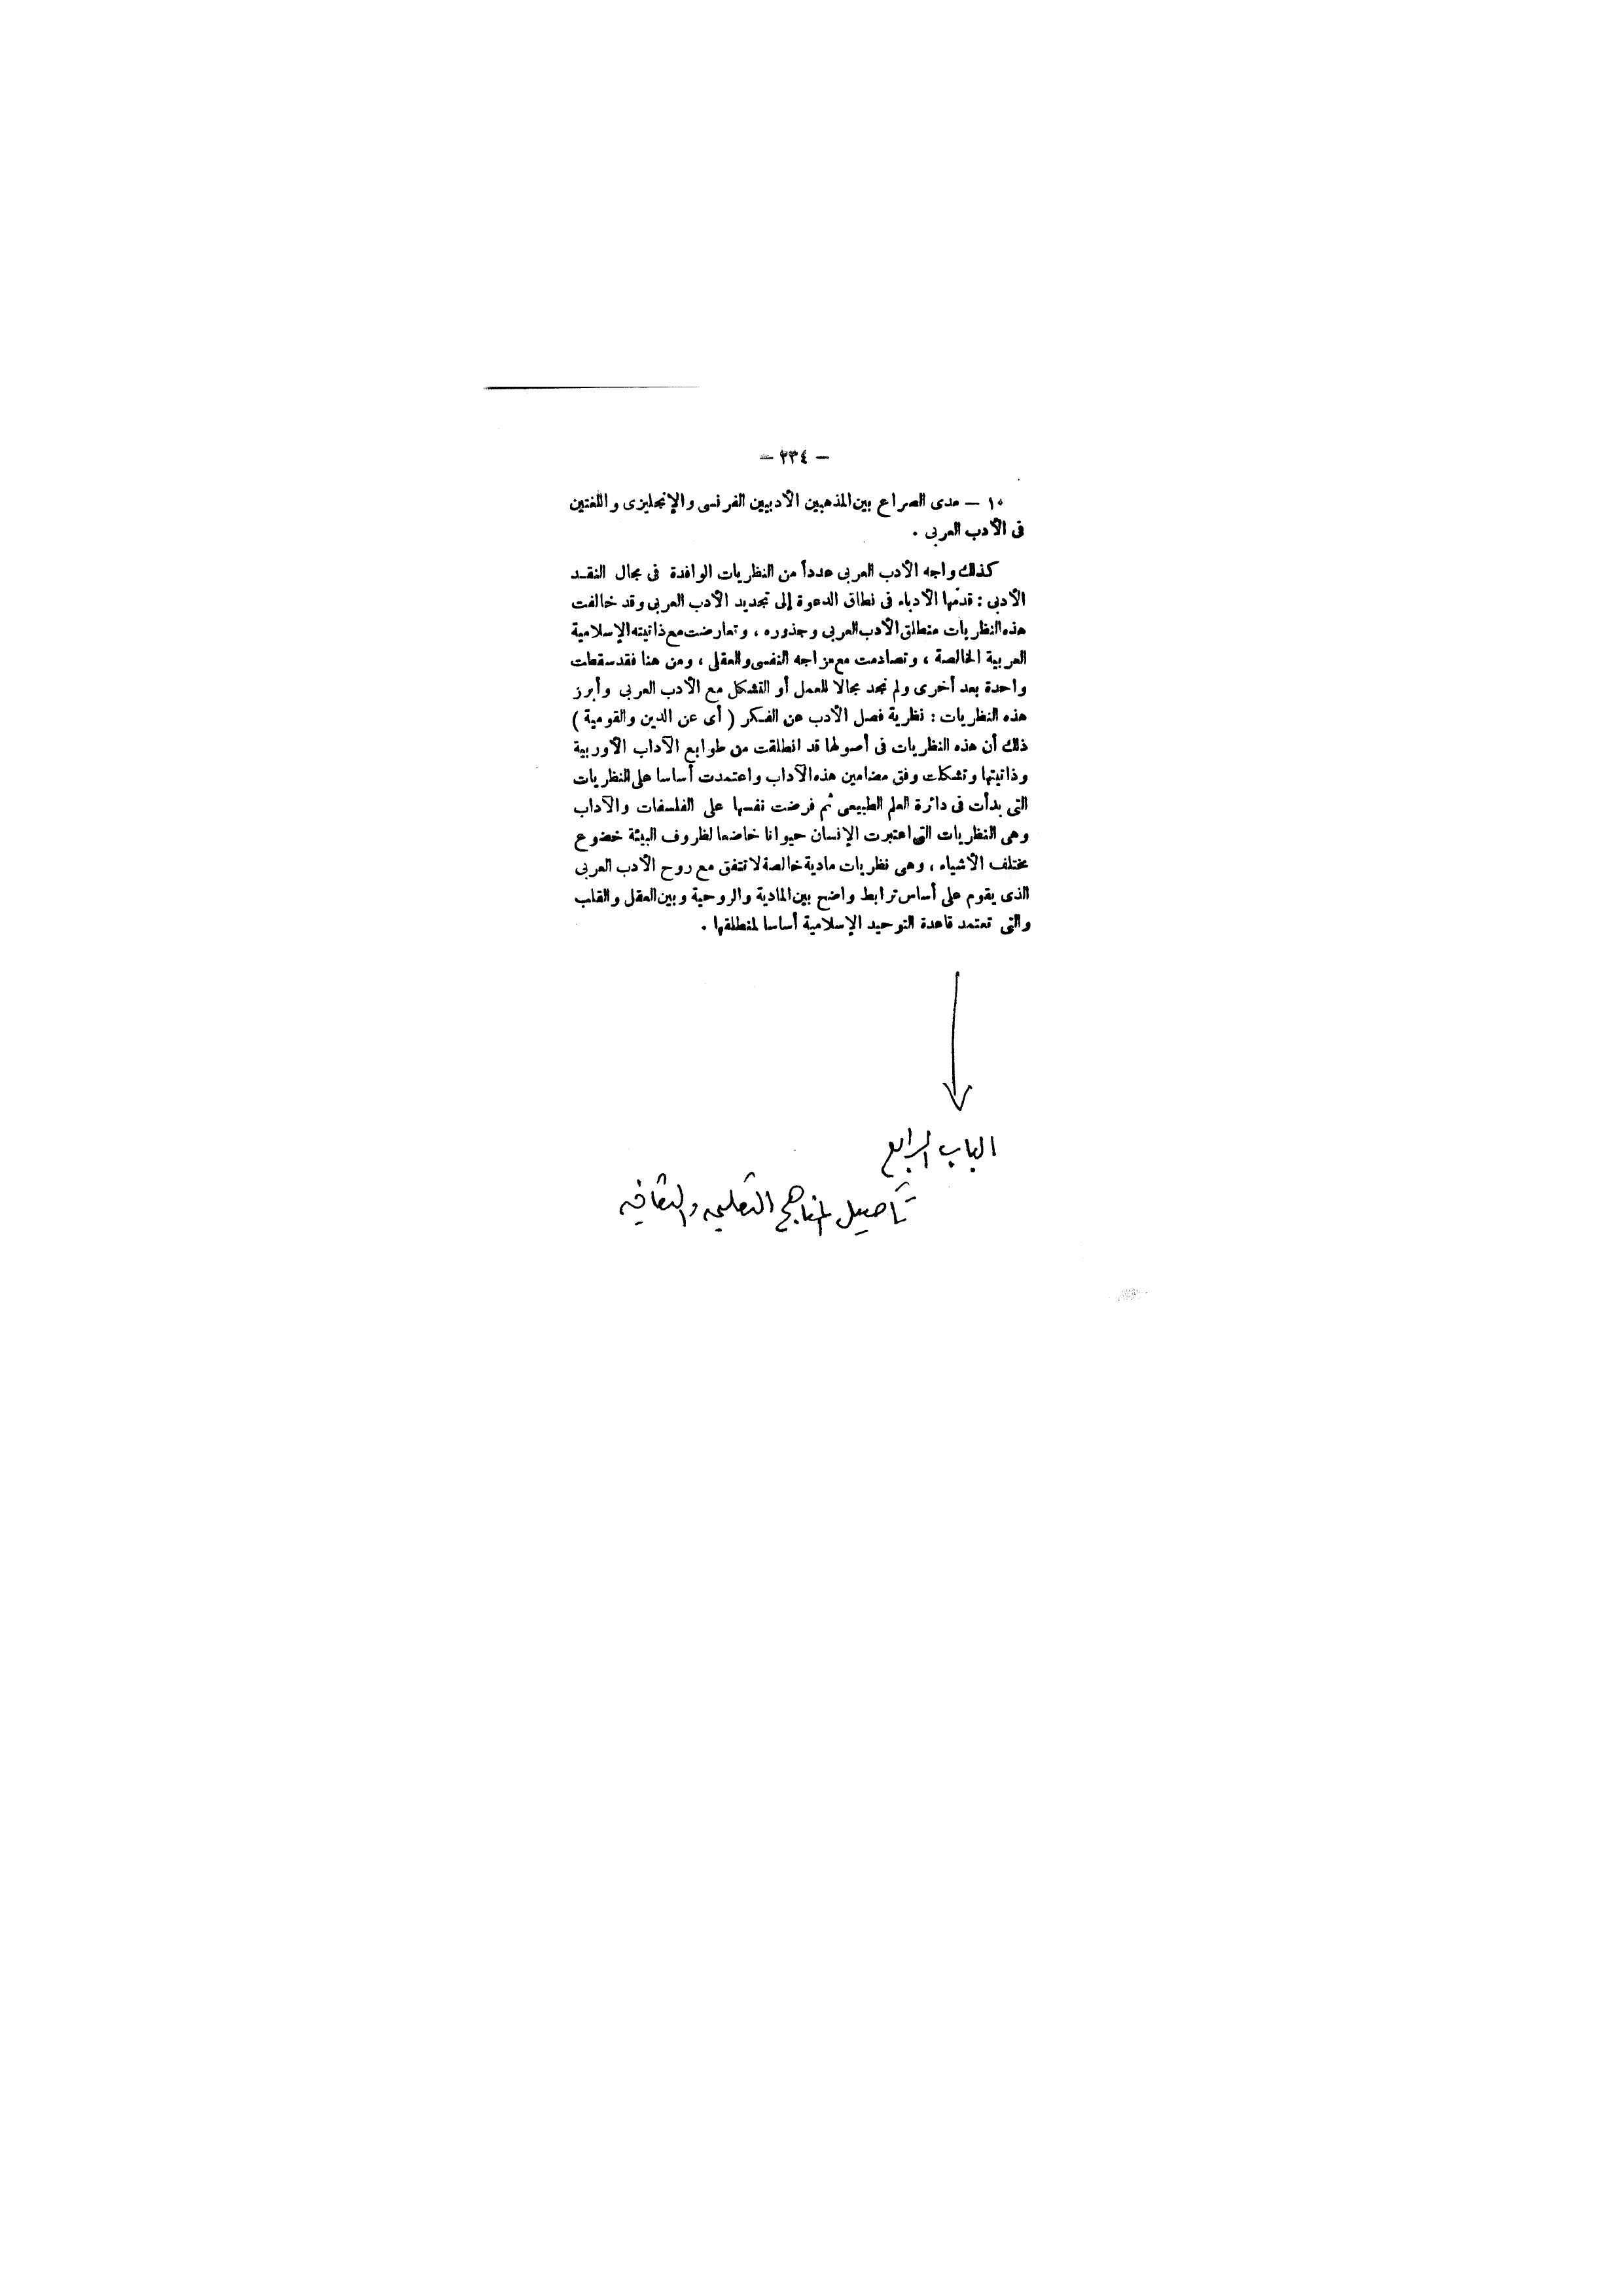 — ٢٣٤ —
١٠ — مدى الصراع بين المذهبين الأدبيين الفرنسى والإنجليزى واللغتين
فى الأدب العربى .
كذلك واجه الأدب العربى عدداً من النظريات الوافدة فى مجال النقـد
الأدبى : قدّمها الأدباء فى نطاق الدعوة إلى تجديد الأدب العربى وقد خالفت
هذه النظريات منطلق الأدب العربى وجذوره ، وتعارضت مع ذاتيته الإسلامية
العربية الخالصة ، وتصادمت مع مزاجه النفسى والعقلى ، ومن هنا فقد سقطت
واحدة بعد أخرى ولم تجد مجالا للعمل أو التشكل مع الأدب العربى وأبرز
هذه النظريات : نظرية فصل الأدب عن الفـكر ( أى عن الدين والقومية )
ذلك أن هذه النظريات فى أصولها قد انطلقت من طوابع الآداب الأوربية
وذاتيتها وتشكلت وفق مضامين هذه الآداب واعتمدت أساسا على النظريات
التى بدأت فى دائرة العلم الطبيعى ثم فرضت نفسها على الفلسفات والآداب
وهى النظريات التى اعتبرت الإنسان حيوانا خاضعا لظروف البيئة خضوع
مختلف الأشياء ، وهى نظريات مادية خالصة لا تتفق مع روح الأدب العربى
الذى يقوم على أساس ترابط واضح بين المادية والروحية وبين العقل والقلب
والتى تعتمد قاعدة التوحيد الإسلامية أساسا لمنطلقها .
الباب الرابع
تأصيل المناهج التعليمية والثقافية